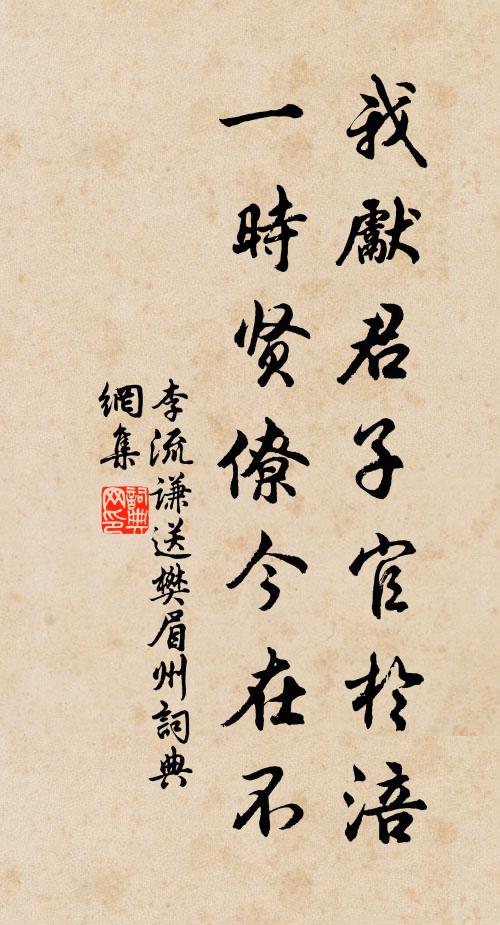 我獻君子官於涪
一時贤僚今在不
李流谦送樊眉州詞典
網集
詞典网印